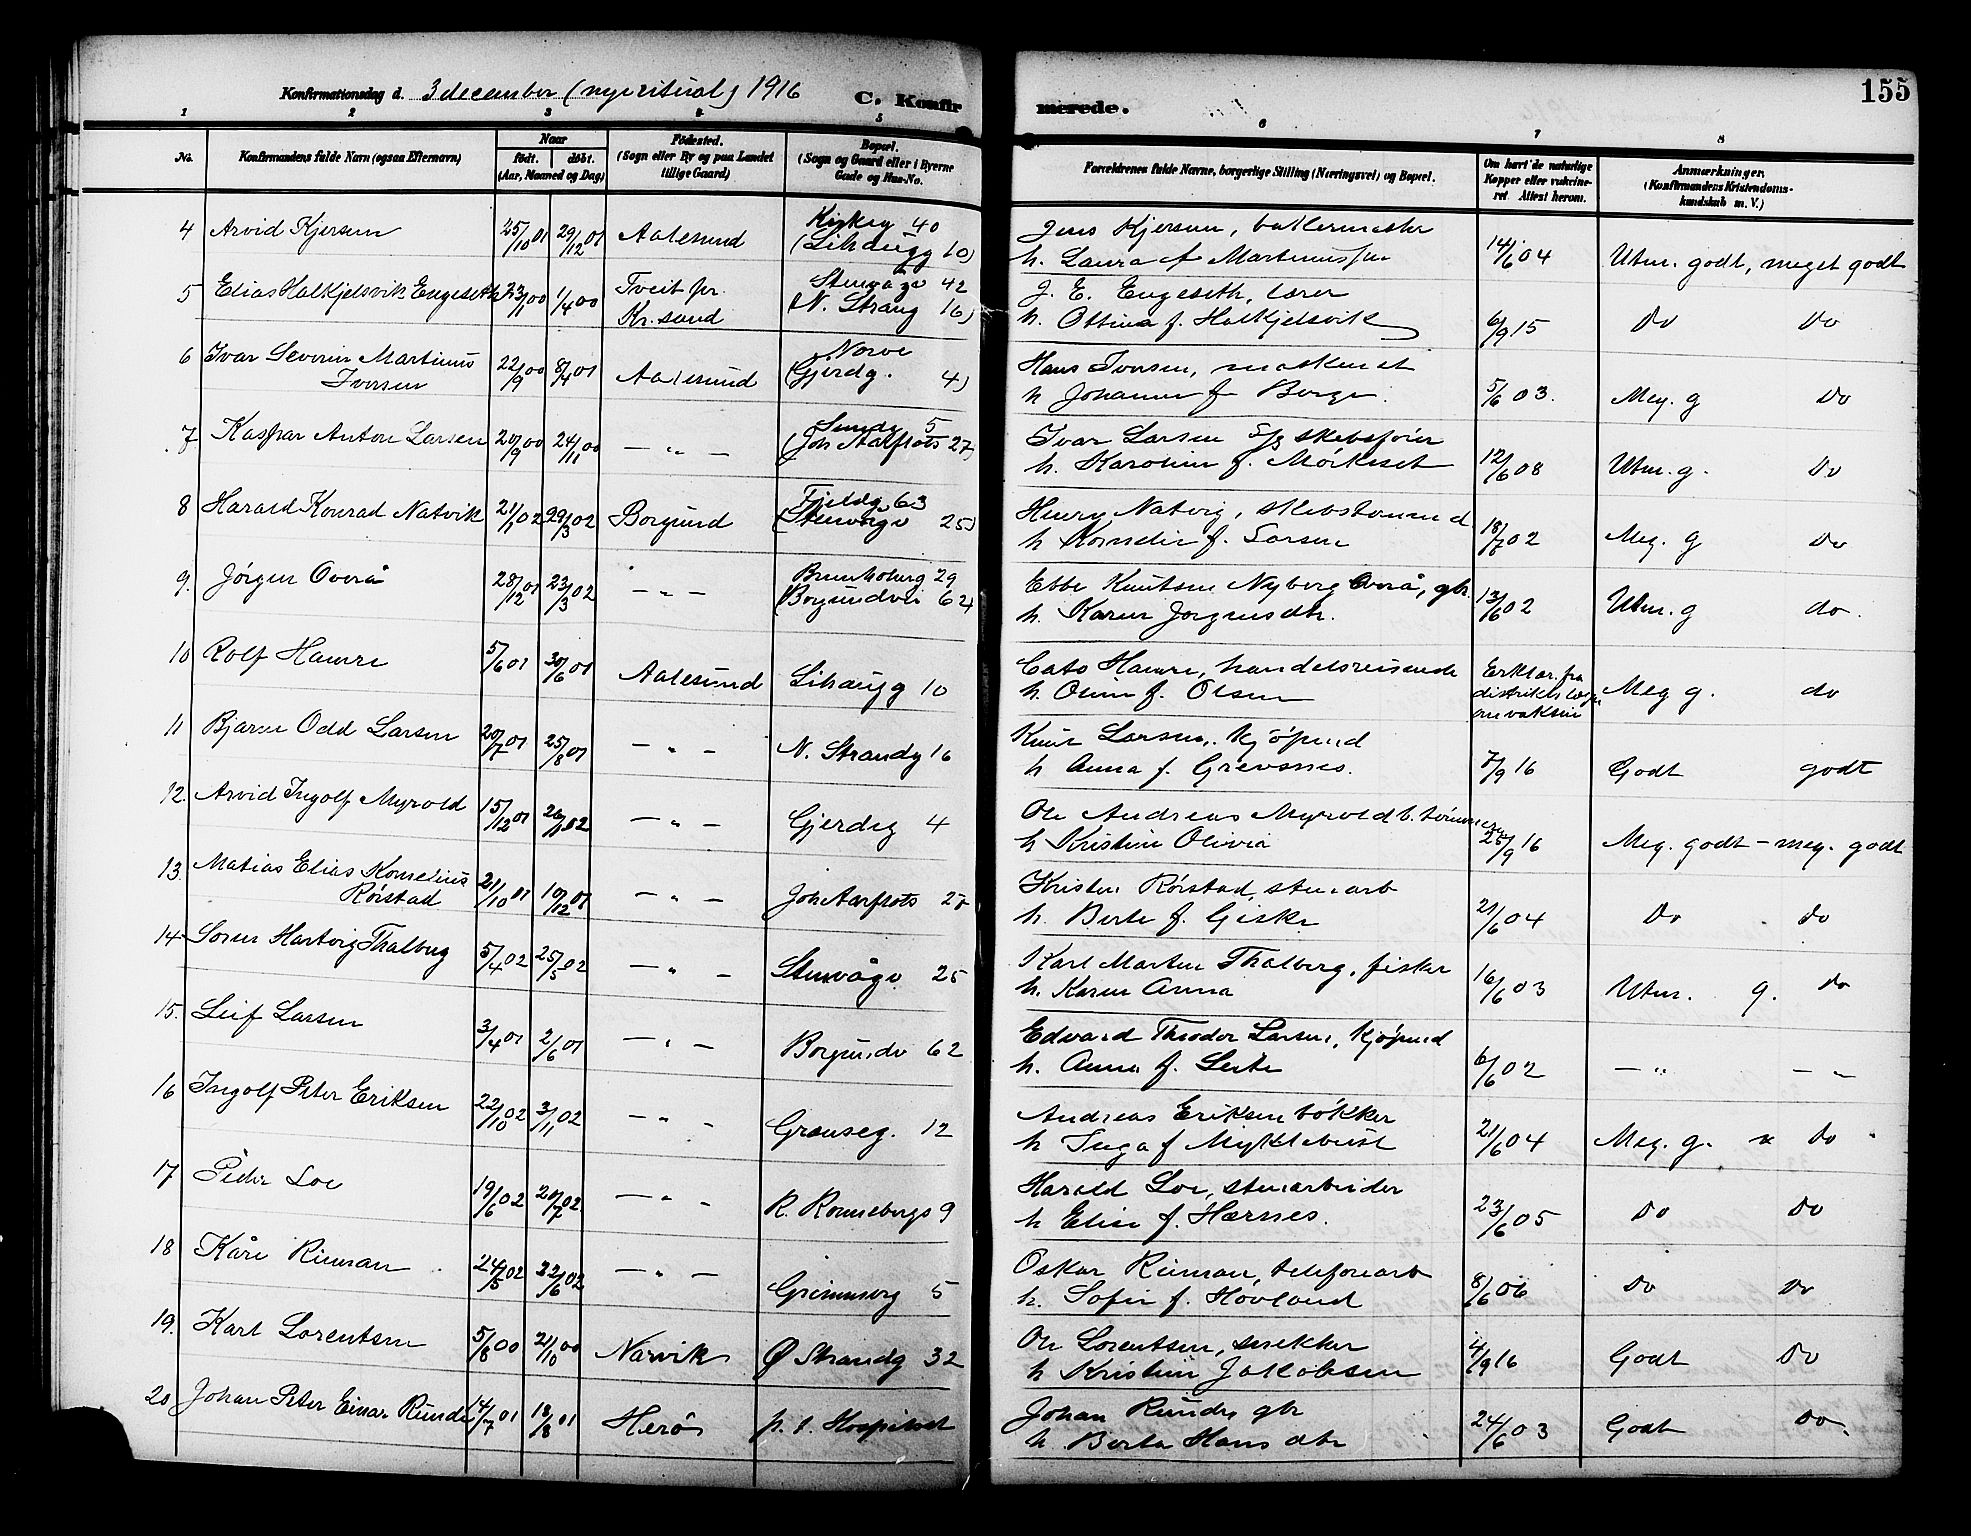 155
Konfirmationsdag d. 3 december (nye ritual) 1916 C. Konfirmerede.
1 2 3 4 5 6 7 8
No.
Konfirmandens fulde Navn (ogsaa Efternavn)
Naar
født. døbt.
(Aar, Maaned og Dag)
Fødested.
(Sogn eller By og paa Landet
tillige Gaard)
Bopæl.
(Sogn og Gaard eller i Byerne
Gade og Hus-No.
Forældrenes fulde Navne, borgerlige Stilling (Næringsvei) og Bopæl.
Om havt de naturlige
Kopper eller vakcine-
ret. Attest herom.
Anmærkninger.
(Konfirmandens Kristendoms-
kundskab m. V.)
4 Arvid Kjersem 25/10 01 29/12 01 Aalesund 40
(Lihaugg 10)
Jens Kjersem,
h. Laura f Martinussen 14/6 04 Utm. godt, meget godt
5 Elias Halkjelsvik Engeseth 23/1 00 1/4 00 Tveit pr.
Kr.sand
Stenvågv 42
(N. Strang 16)
J. E. Engeseth, lærer
h. Ottina f. Halkjelsvik 6/9 15 Do Do
6 Ivar Severin Martinus
Iversen 22/9 00 8/4 01 Aalesund Nørve
(Gjerdg. 4)
Hans Iversen,
h Johanne f Berge. 5/6 03. Meg. g Do
7 Kaspar Anton Larsen 20/9 00 24/11 00 — " — 5
(Joh Aarflots 27)
Ivar Larsen skibsfører
h. Karoline f. Mørkeset 12/6 08 Utm. g. Do
8 Harald Konrad Natvik 21/1 02 29/3 02 Borgund Fjeldg 63
(Stenvågv 25)
Henry Natvig, skibstømmerm
h Kornelie f. Larsen 18/7 02 Meg. g Do
9. Jørgen Overå 28/12 01 23/3 02 — " — 29
(Borgundvei 62)
Ebbe Knutsen Nyborg Overå, gbr.
h. Karen Jørgensdtr. 13/6 02 Utm. g do.
10 Rolf Hamre 5/6 01 30/6 01 Aalesund Lihaugg 10
Cato Hamre, handelsreisende
h. Oline f. Olsen
Erklær. fra
distriktslæge
om vaksin
Meg g. do
11 Bjarne Odd Larsen 20/7 01 25/8 01 — " — N. Strandg 16
Knut Larsen, kjøpmd
h Anna f. Grevsnes. 7/9 16 Godt godt
12. Arvid Ingolf Myrold 15/12 01 26/1 02 — " — Gjerdeg 4
Ole Andreas Myrold
h Kristine Olivia 25/9 16 Meg. godt — meg. godt
13. Matias Elias Kornelius
Rørstad 21/10 01 10/12 01 — " — Joh Aarflots 27
Kristen Rørstad, stenarb
h. Berte f. Giske 21/6 04 Do Do
14 Søren Hartvig Thalberg 5/4 02 25/5 02 — " — Stenvågv 25
Karl Martin Thalberg, fisker
h. Karen Anna 16/6 03 Utm. g. Do
15. Leif Larsen 3/4 01 2/6 01 — " — Borgundv 62
Edvard Theodor Larsen, kjøpmd
h. Anna f. Leite 6/6 02 — " — " —
16 Ingolf Peter Eriksen 22/10 02 3/11 02 — " — Grænseg. 12
Andreas Eriksen bøkker
h Inga f Myklebust 21/6 04 Meg. g. Do
17 Peder Loe 19/6 02 20/7 02 — " — R. Rønnebergs 9
Harald Loe, stenarbeider
h Elise f. Hærnes. 23/6 05 Do Do
18 Kåre Rieman 24/5 02 22/6 02 — " — 5
Oskar Rieman, telefonarb
h. Sofie f. Hovland 8/6 06 Do Do
19. Karl Lorentsen 5/8 00 21/10 00 Narvik Ø Strandg 32
Ole Lorentsen, snekker
h Kristine Jakobsen 4/9 16 Godt Do
20 Johan Peter Einar Runde 14/7 01 18/8 01 Herø p. t. Hospitalet
Johan Runde gbr
h. Berta Hansdtr 24/6 03 Godt Do.